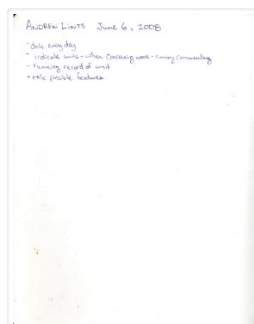 ANDREW LINTS June 6, 2008
- date every day
- indicate units - when conversing work - running commentary
- running record of unit
- note possible features